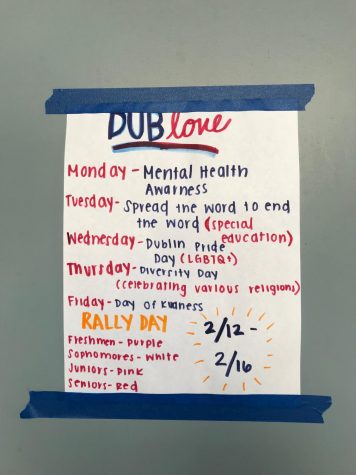 DUB love
Monday - Mental Health
Awarness
Tuesday - Spread the word to end
the word (special
education)
Wednesday - Dublin Pride
Day (LGBTQ+)
Thursday - Diversity Day
(celebrating various religions)
Friday - Day of Kindness
RALLY DAY
Freshmen - Purple
Sophomores - White
Juniors - Pink
Seniors - Red
2/12 -
2/16